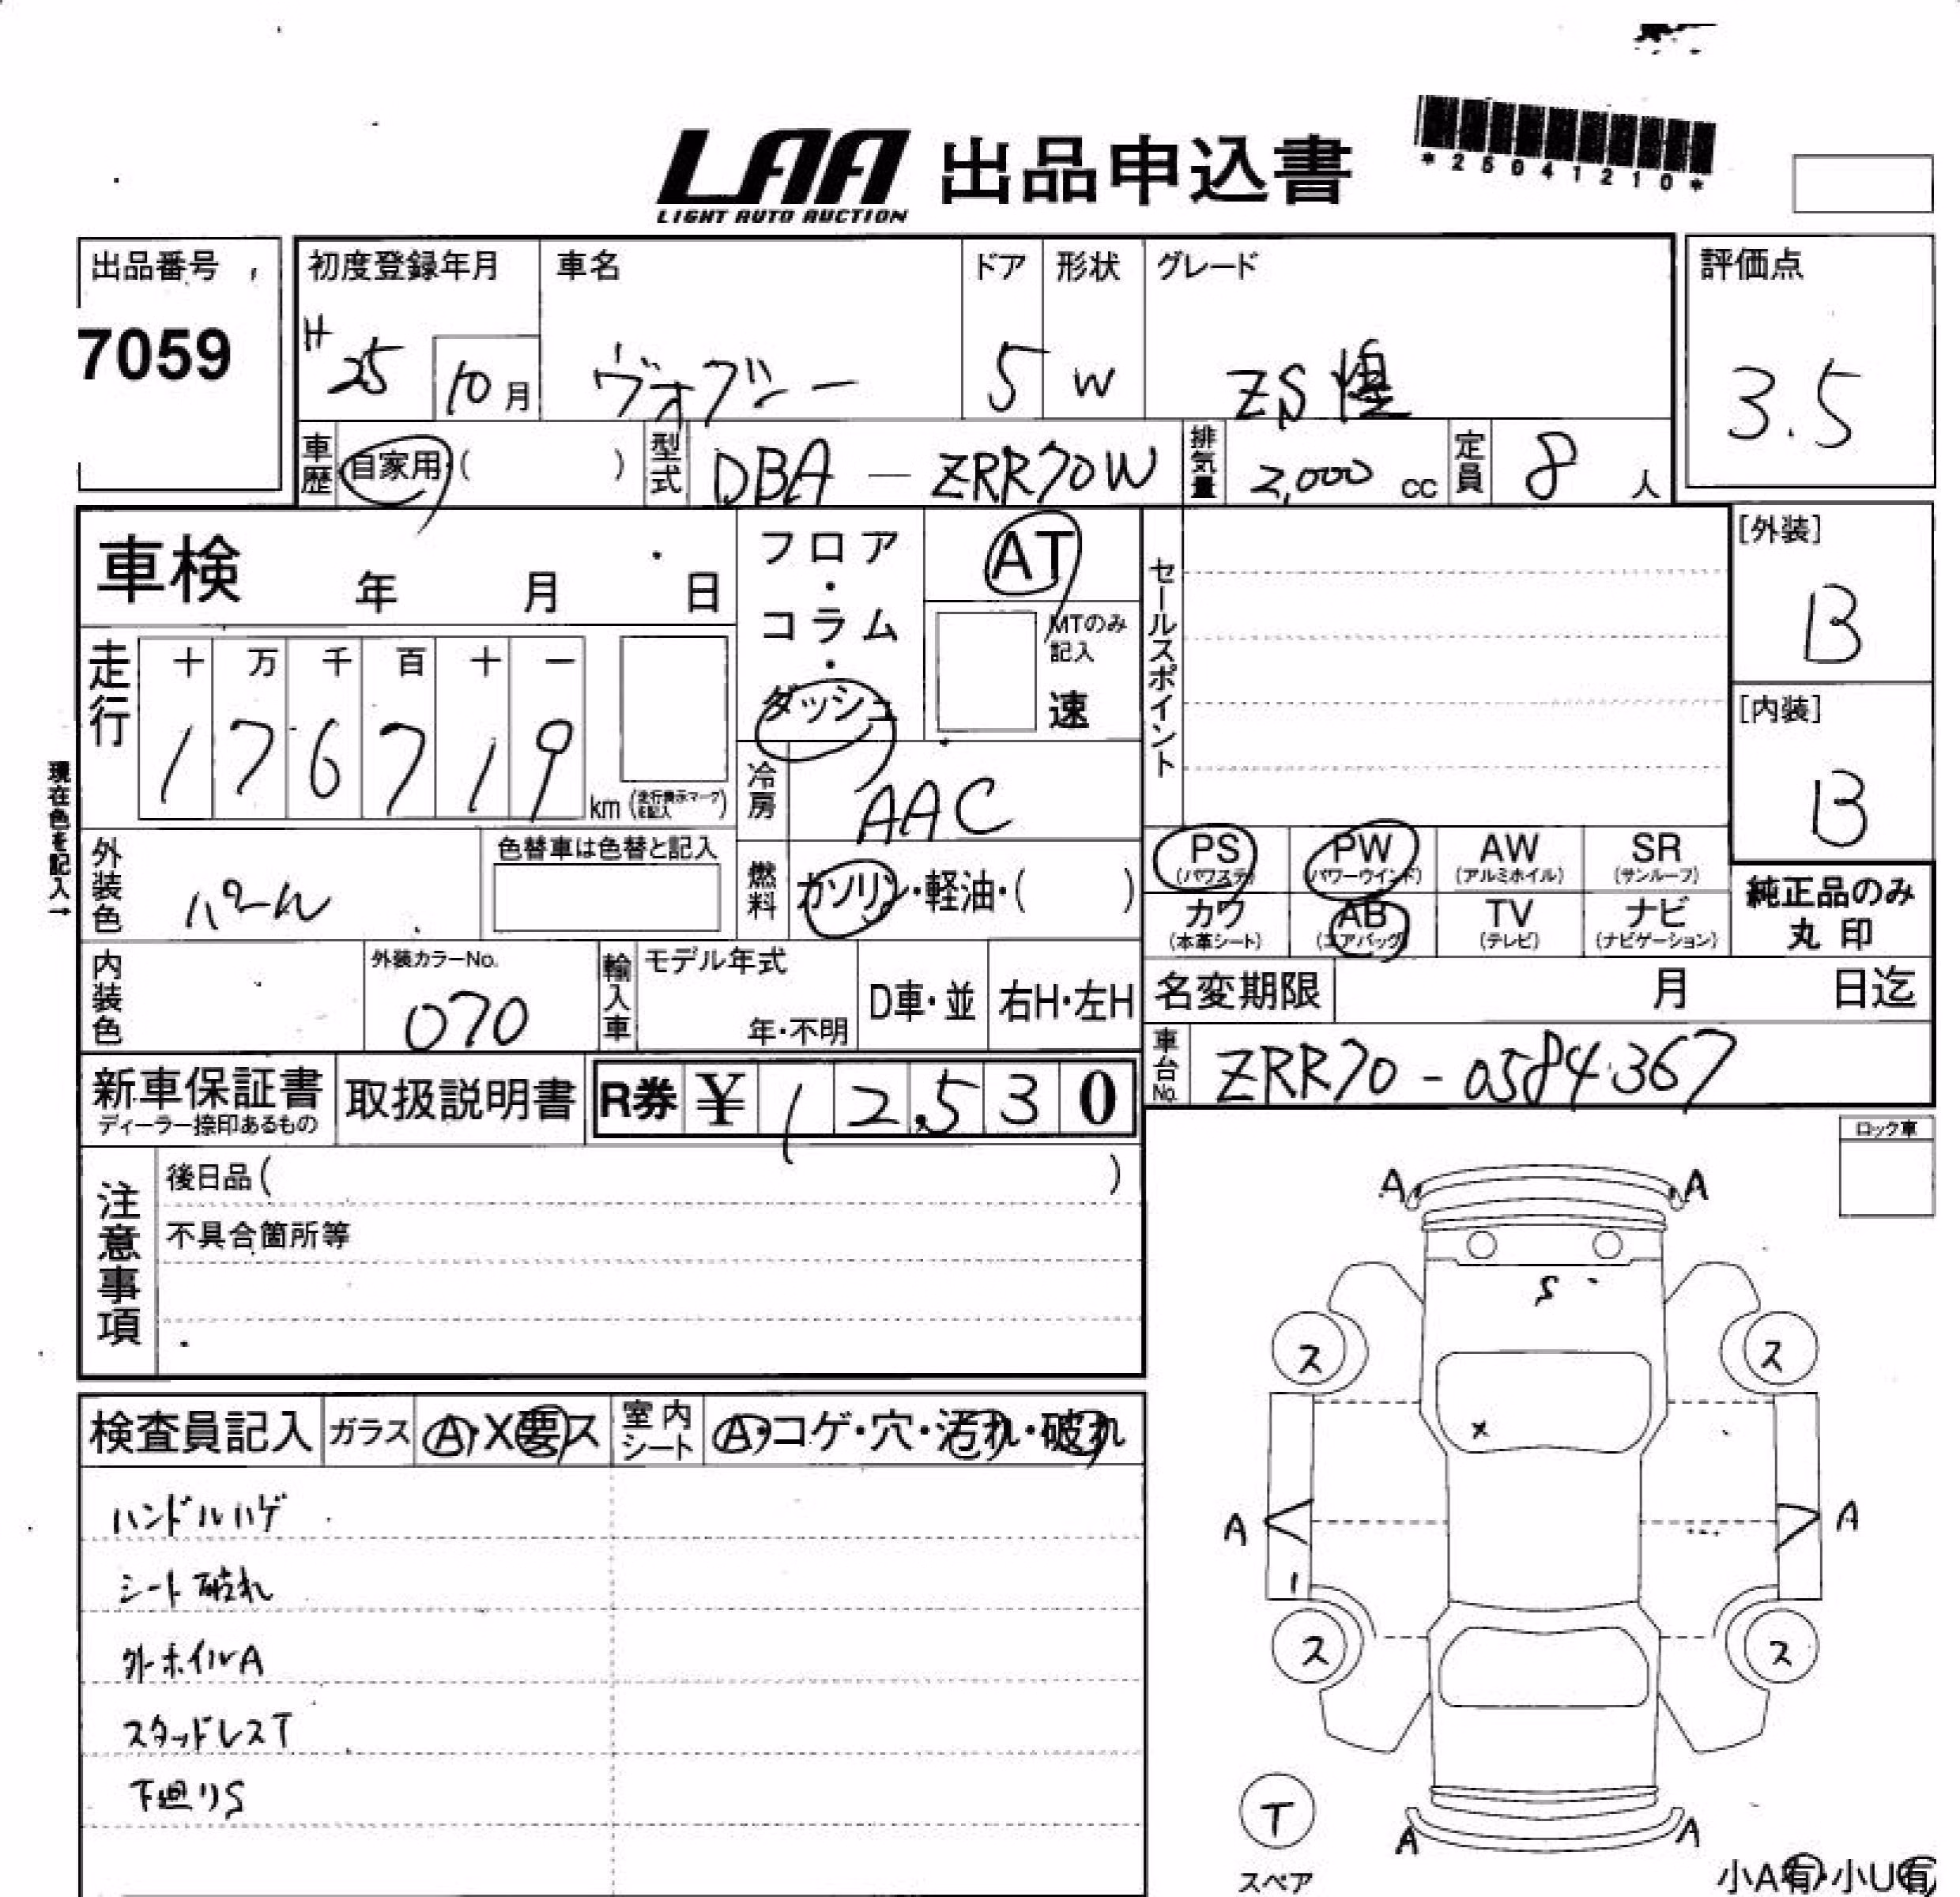 LAA 出品申込書
LIGHT AUTO AUCTION
*25041210*
出品番号
7059
初度登録年月 車名 ドア 形状 グレード
H25 10月 ヴォクシー 5 W ZS煌
評価点
3.5
車歴 自家用・( ) 型式 DBA－ZRR70W 排気量 2,000 cc 定員 8 人
[外装]
B
[内装]
B
車検 年 月 日
フロア・コラム・ダッシュ
AT
MTのみ記入
速
セールスポイント
現在色を記入→
走行 十 万 千 百 十 一
1 7 6 7 1 9 km (走行表示マークを記入)
冷房 AAC
外装色 パール 色替車は色替と記入
燃料 ガソリン・軽油・( )
PS (パワステ) PW (パワーウインド) AW (アルミホイル) SR (サンルーフ)
カワ (本革シート) AB (エアバッグ) TV (テレビ) ナビ (ナビゲーション)
純正品のみ
丸印
内装色 外装カラーNo. 070
輸入車 モデル年式 年・不明 D車・並 右H・左H
名変期限 月 日迄
車台No. ZRR70-0584367
新車保証書 ディーラー捺印あるもの
取扱説明書
R券 ¥ 1 2,5 3 0
注意事項
後日品( )
不具合箇所等
ロック車
A A
S
ス ス
X
A A
ス ス
T
スペア
A A
小A有・小U有
検査員記入 ガラス A・X要ス 室内シート A・コゲ・穴・汚れ・破れ
ハンドルハゲ
シート破れ
外ホイルA
スタッドレスT
下廻りS